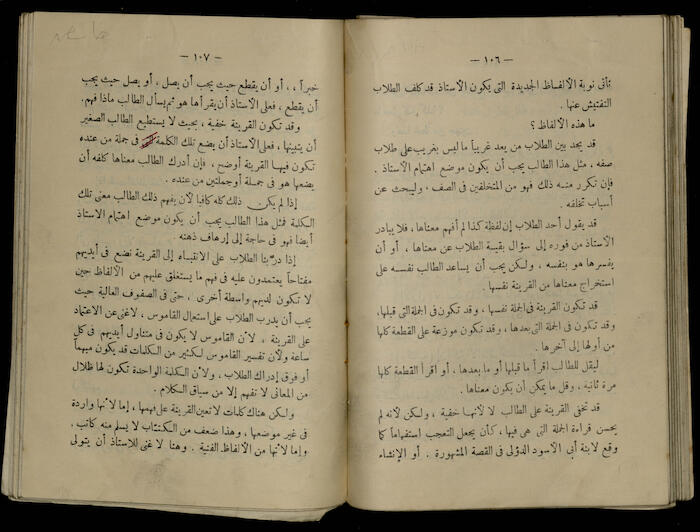 — ١٠٦ —
تأتى نوبة الألفاظ الجديدة التى يكون الأستاذ قد كلف الطلاب
التفتيش عنها .
ما هذه الألفاظ ؟
قد يجد بين الطلاب من يعد غريباً ما ليس بغريب على طلاب
صفه ، مثل هذا الطالب يجب أن يكون موضع اهتمام الأستاذ .
فإن تكرر منه ذلك فهو من المتخلفين فى الصف ، وليبحث عن
أسباب تخلفه .
قد يقول أحد الطلاب إن لفظة كذا لم أفهم معناها ، فلا يبادر
الأستاذ من فوره إلى سؤال بقية الطلاب عن معناها ، أو أن
يفسرها هو بنفسه ، ولكن يجب أن يساعد الطالب نفسه على
استخراج معناها من القرينة نفسها .
قد تكون القرينة فى الجملة نفسها ، وقد تكون فى الجملة التى قبلها،
وقد تكون فى الجملة التى بعدها ، وقد تكون موزعة على القطعة كلها
من أولها إلى آخرها .
ليقل للطالب اقرأ ما قبلها أو ما بعدها ، أو اقرأ القطعة كلها
مرة ثانية ، وقل ما يمكن أن يكون معناها .
قد تخفى القرينة على الطالب لا لأنها خفية ، ولكن لأنه لم
يحسن قراءة الجملة التى هى فيها ، كأن يجعل التعجب استفهاماً كما
وقع لابنة أبى الأسود الدؤلى فى القصة المشهورة . أو الإنشاء
— ١٠٧ —
خبراً ، ، أو أن يقطع حيث يجب أن يصل ، أو يصل حيث يجب
أن يقطع ، فعلى الأستاذ أن يقرأها هو ثم يسأل الطالب ماذا فهم .
وقد تكون القرينة خفية ، بحيث لا يستطيع الطالب الصغير
أن يتبينها ، فعلى الأستاذ أن يضع تلك الكلمة فى جملة من عنده
تكون فيها القرينة أوضح ، فإن أدرك الطالب معناها كلفه أن
يضعها هو فى جملة أو جملتين من عنده .
إذا لم يكن ذلك كله كافيا لأن يفهم ذلك الطالب معنى تلك
الكلمة فمثل هذا الطالب يجب أن يكون موضع اهتمام الأستاذ
أيضا فهو فى حاجة إلى إرهاف ذهنه .
إذا دربنا الطلاب على الانتباه إلى القرينة نضع فى أيديهم
مفتاحاً يعتمدون عليه فى فهم ما يستغلق عليهم من الألفاظ حين
لا تكون لديهم واسطة أخرى ، حتى فى الصفوف العالية حيث
يجب أن يدرب الطلاب على استعمال القاموس ، لا غنى عن الاعتماد
على القرينة ، لأن القاموس لا يكون فى متناول أيديهم فى كل
ساعة ولأن تفسير القاموس لكثير من الكلمات قد يكون مبهماً
أو فوق إدراك الطلاب ، ولأن الكلمة الواحدة تكون لها ظلال
من المعانى لا تفهم إلا من سياق الكلام .
ولكن هناك كلمات لا تعين القرينة على فهمها ، إما لأنها واردة
فى غير موضعها ، وهذا ضعف من الكتاب لا يسلم منه كاتب .
وإما لأنها من الألفاظ الفنية . وهنا لا غنى للأستاذ أن يتولى